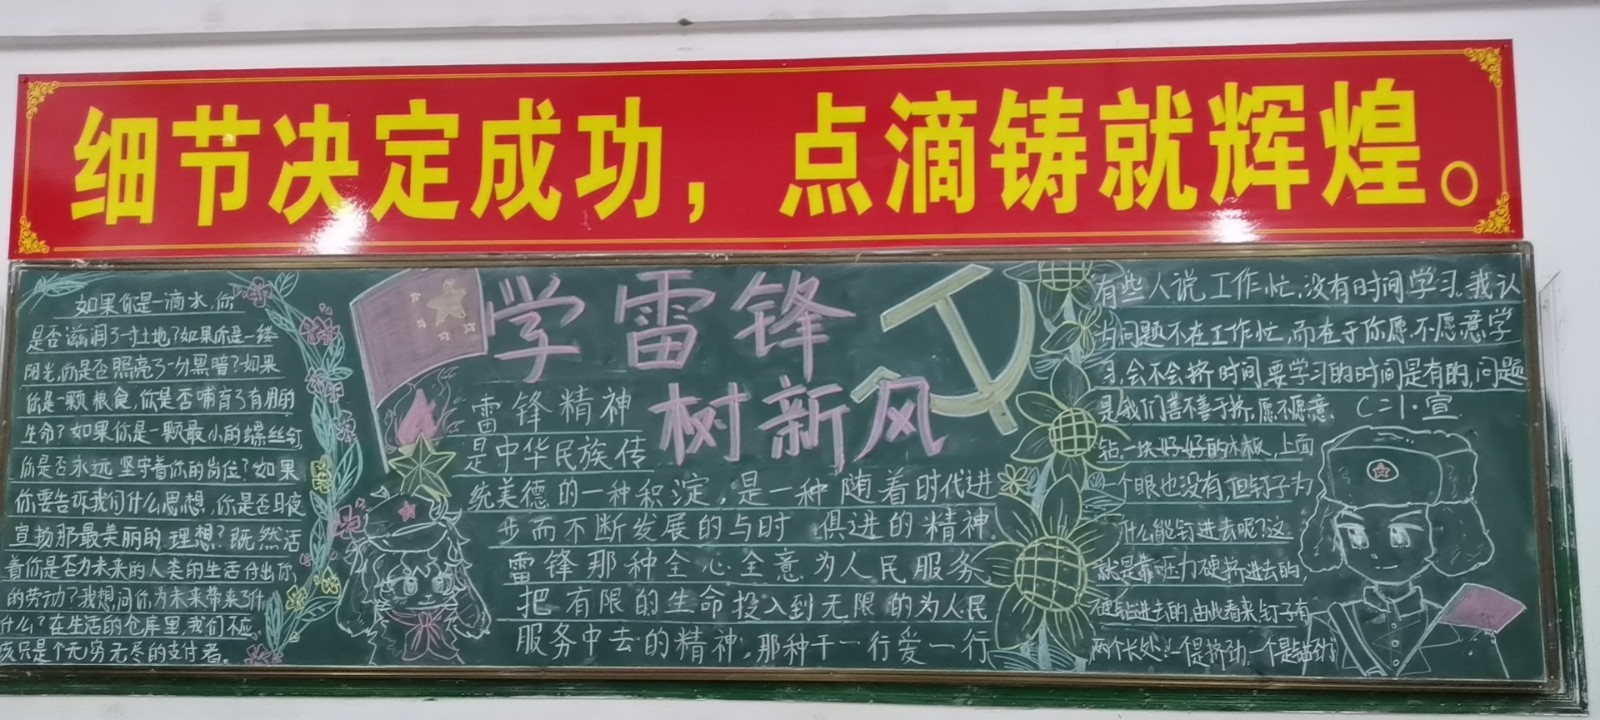 细节决定成功，点滴铸就辉煌。
如果你是一滴水，你
是否滋润了一寸土地？如果你是一缕
阳光，你是否照亮了一分黑暗？如果
你是一颗粮食，你是否哺育了有用的
生命？如果你是一颗最小的螺丝钉
你是否永远坚守着你的岗位？如果
你要告诉我们什么思想，你是否日夜
宣扬那最美丽的理想？既然活
着你是否为未来的人类的生活付出你
的劳动？我想问你为未来带来了什
什么？在生活的仓库里，我们不应
该只是个无穷无尽的支付者。
学雷锋
树新风
雷锋精神
是中华民族传
统美德的一种积淀，是一种随着时代进
步而不断发展的与时俱进的精神。
雷锋那种全心全意为人民服务
把有限的生命投入到无限的为人民
服务中去的精神，那种干一行爱一行
有些人说工作忙，没有时间学习，我认
为问题不在工作忙，而在于你愿不愿意学
习，会不会挤时间，要学习的时间是有的，问题
是我们善不善于挤，愿不愿意。
一块好好的木板，上面
一个眼也没有，但钉子为
什么能钉进去呢？这
就是靠压力硬挤进去的，
硬钻进去的，由此看来，钉子有
两个长处：一个是挤劲，一个是